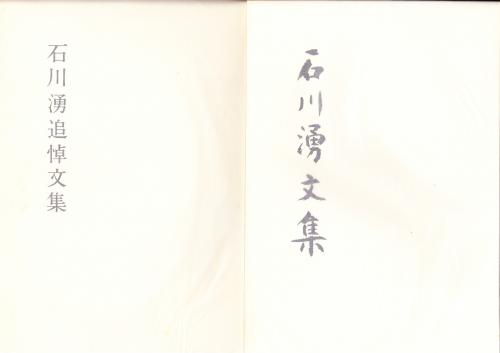 石川湧追悼文集
石川湧文集